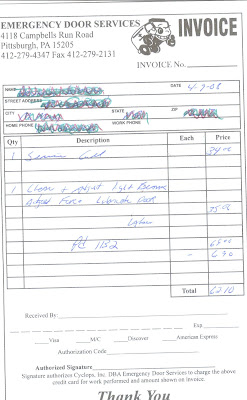 EMERGENCY DOOR SERVICES
4118 Campbells Run Road
Pittsburgh, PA 15205
412-279-4347 Fax 412-279-2131
INVOICE
INVOICE No.
NAME
DATE 4-7-08
STREET ADDRESS
CITY STATE ZIP
HOME PHONE WORK PHONE
Qty Description Each Price
1 Service Call
1 Clean + Adjust Light Beams
Adjust Force Lubricate Door
Labor
Pd 1132
Total
Received By:
Exp
Visa M/C Discover American Express
Authorization Code
Authorized Signature
Signature authorizes Cyclops, Inc. DBA Emergency Door Services to charge the above
credit card for work performed and amount shown on invoice.
Thank You